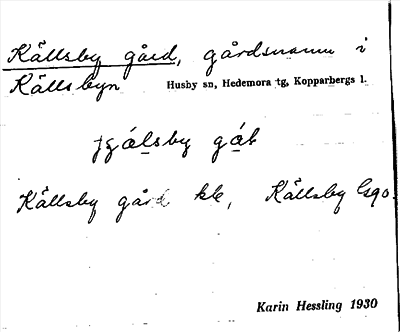 Källsby gård, gårdsnamn i
Källsbyn Husby sn, Hedemora tg, Kopparbergs l.
gå
Källsby gård kk, Källsby Esqo.
Karin Hessling 1930